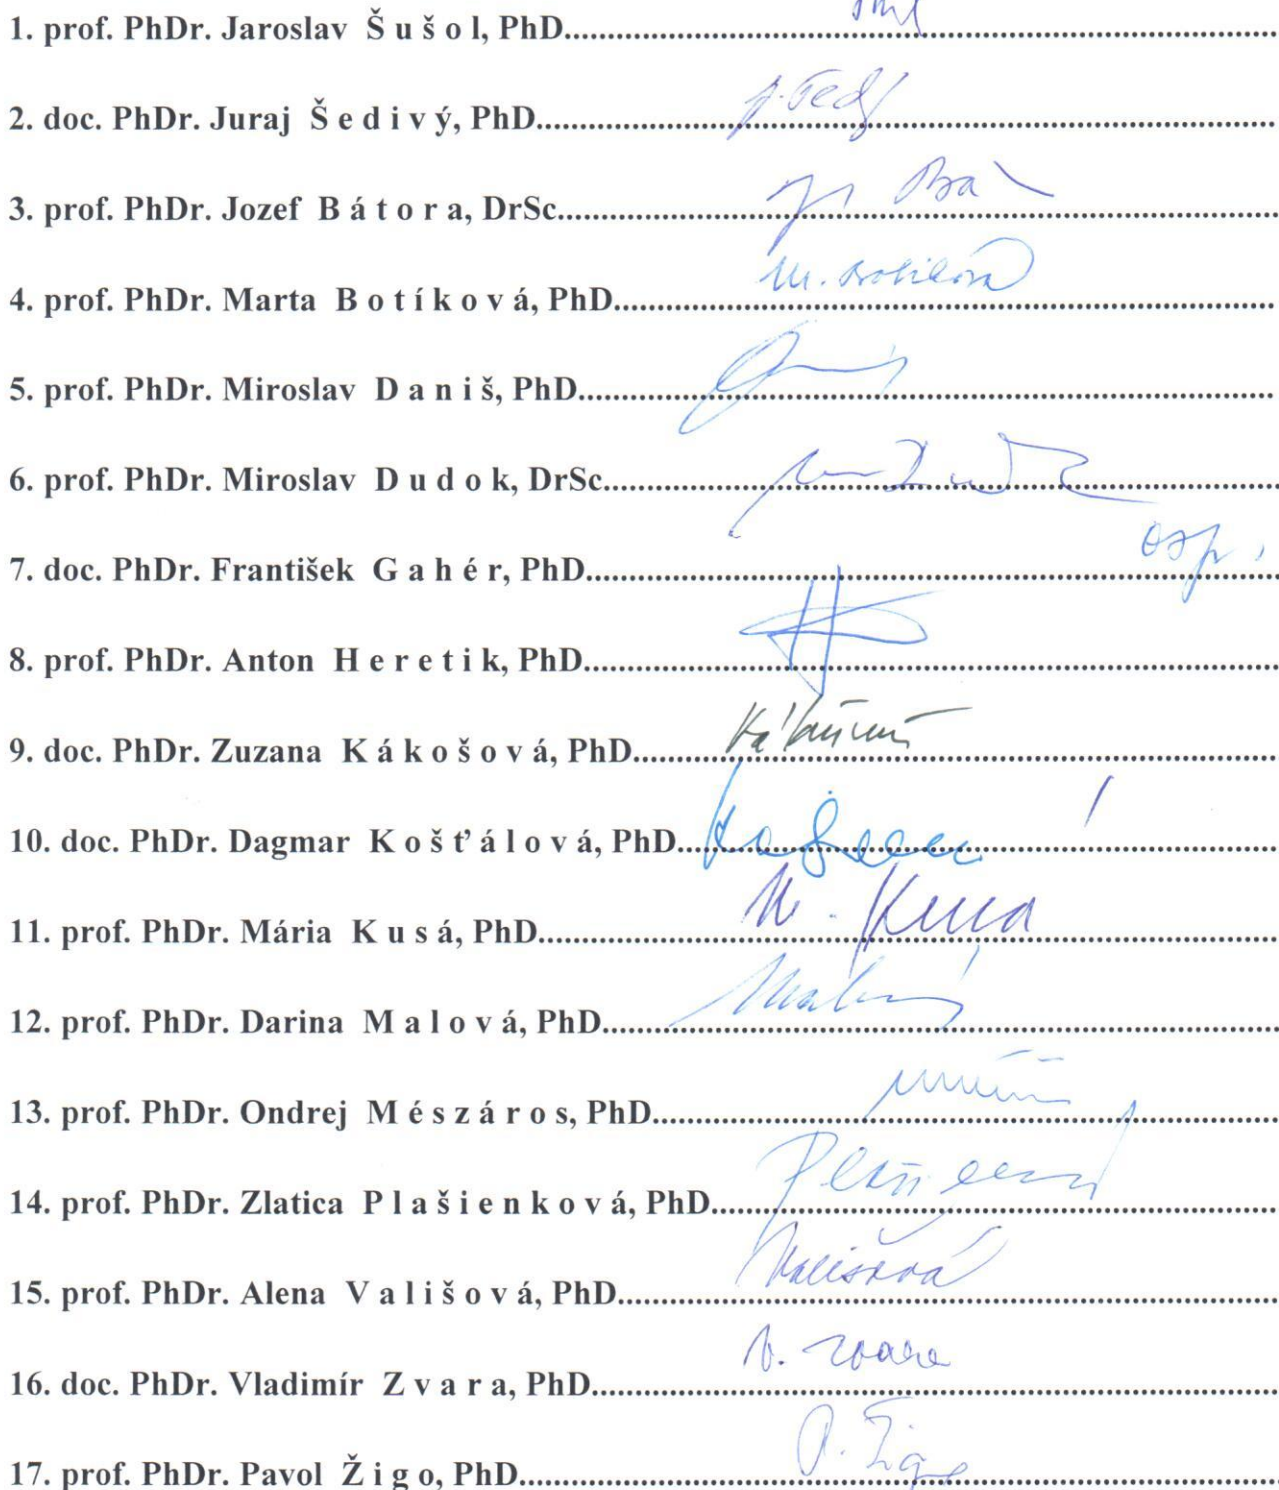 1. prof. PhDr. Jaroslav Š u š o l, PhD.......................................................................................
2. doc. PhDr. Juraj Š e d i v ý, PhD.......................................................................................
3. prof. PhDr. Jozef B á t o r a, DrSc.......................................................................................
M. Botíková
4. prof. PhDr. Marta B o t í k o v á, PhD.......................................................................................
5. prof. PhDr. Miroslav D a n i š, PhD.......................................................................................
6. prof. PhDr. Miroslav D u d o k, DrSc.......................................................................................
osp.
7. doc. PhDr. František G a h é r, PhD.......................................................................................
8. prof. PhDr. Anton H e r e t i k, PhD.......................................................................................
9. doc. PhDr. Zuzana K á k o š o v á, PhD.......................................................................................
10. doc. PhDr. Dagmar K o š ť á l o v á, PhD.......................................................................................
M. Kusá
11. prof. PhDr. Mária K u s á, PhD.......................................................................................
12. prof. PhDr. Darina M a l o v á, PhD.......................................................................................
13. prof. PhDr. Ondrej M é s z á r o s, PhD.......................................................................................
14. prof. PhDr. Zlatica P l a š i e n k o v á, PhD.......................................................................................
Vališová
15. prof. PhDr. Alena V a l i š o v á, PhD.......................................................................................
V. Zvara
16. doc. PhDr. Vladimír Z v a r a, PhD.......................................................................................
P. Žigo
17. prof. PhDr. Pavol Ž i g o, PhD.......................................................................................